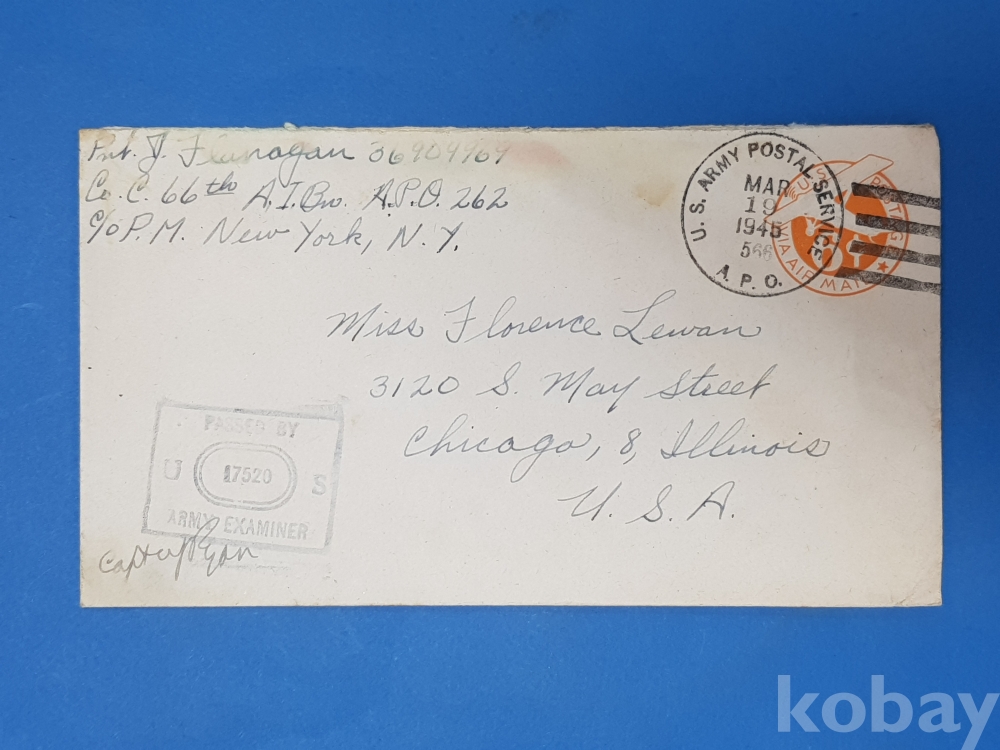 Pvt. J. Flanagan 36909969
Co. C. 66th A.I.Bn. A.P.O. 262
c/o P.M. New York, N.Y.
U. S. ARMY POSTAL SERVICE
MAR
19
1945
566
A. P. O.
U.S. POSTAGE
VIA AIR MAIL
6
Miss Florence Lewan
3120 S. May Street
Chicago, 8, Illinois
U. S. A.
PASSED BY
U 17520 S
ARMY EXAMINER
kobay